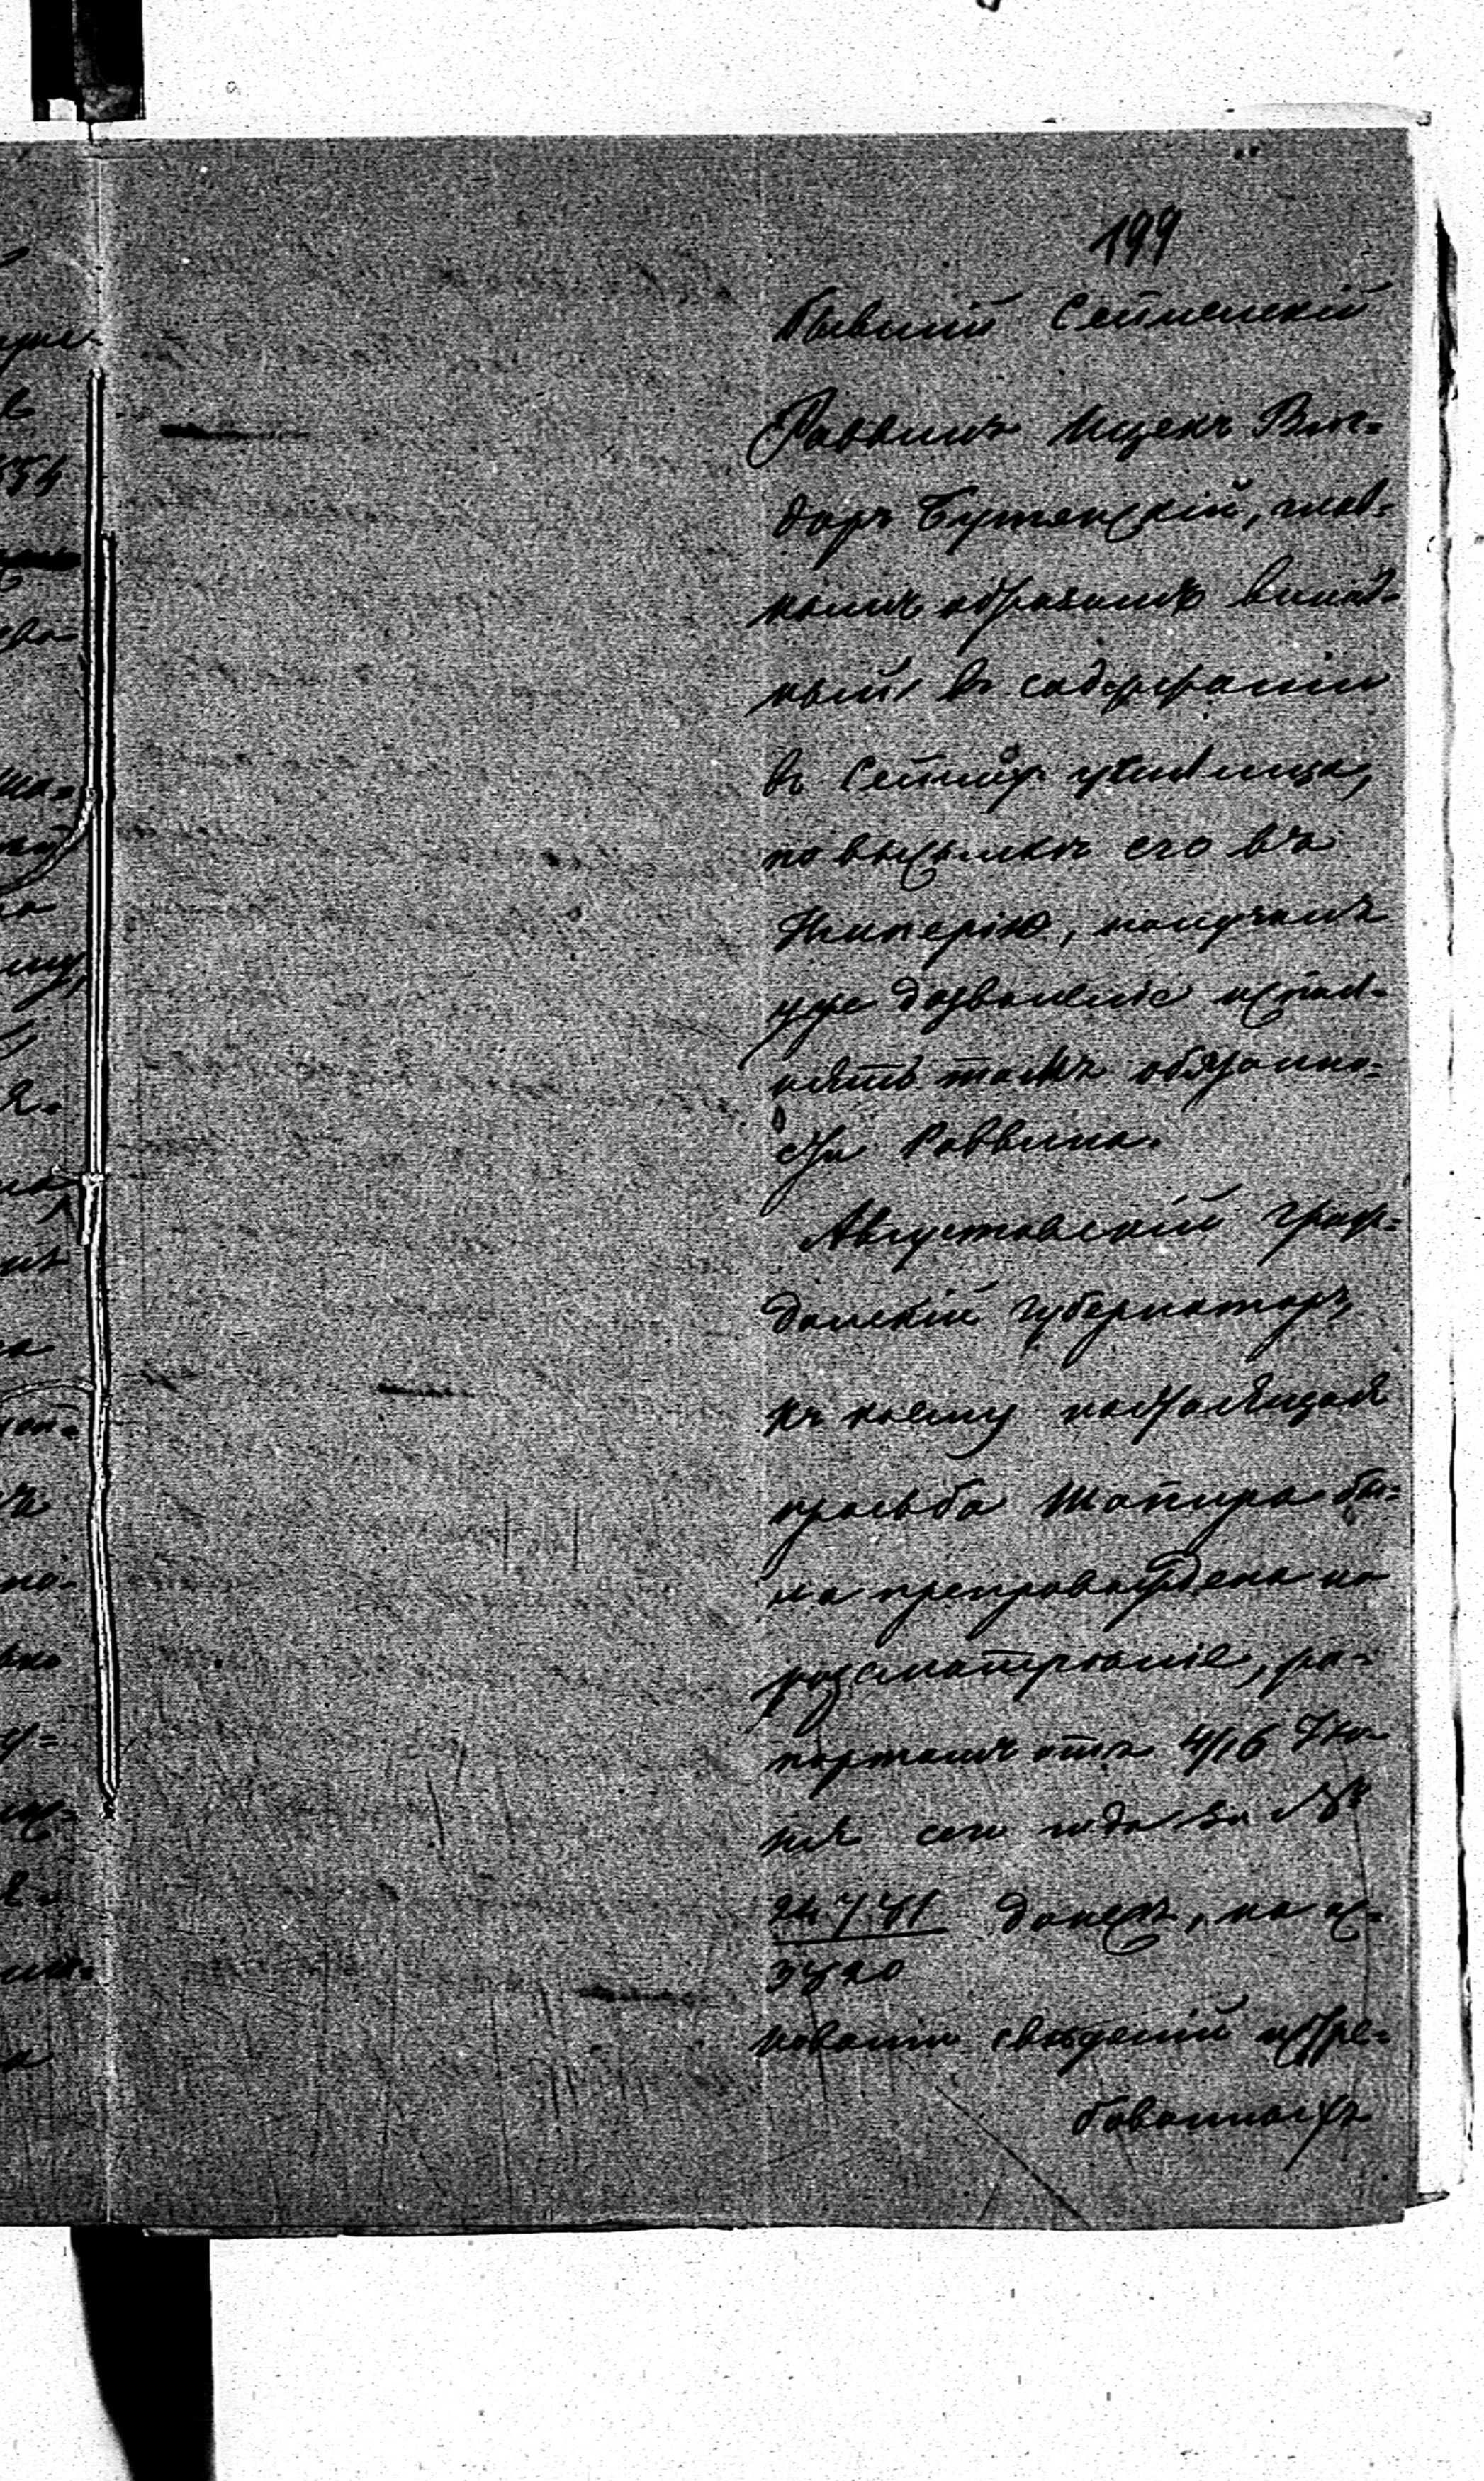 199
бывшій Сейненскій
Раввинъ Ицекъ Виг=
доръ Бутенскій, глав=
нымъ образомъ винов=
ный въ содержаніи
въ Сейнахъ училища,
по высылкѣ его въ
Имперію, получилъ
уже дозволеніе испол=
нять тамъ обязанно=
сти Раввина.
Августовскій Граж=
данскій Губернаторъ,
къ коему настоящая
просьба Шапира бы=
ла препровождена на
разсмотрѣніе, ра=
портомъ отъ 4/16 Iю
ня сего года за №
24.741 донесъ, на ос=
3420
нованіи свѣдѣній истре=
бованныхъ